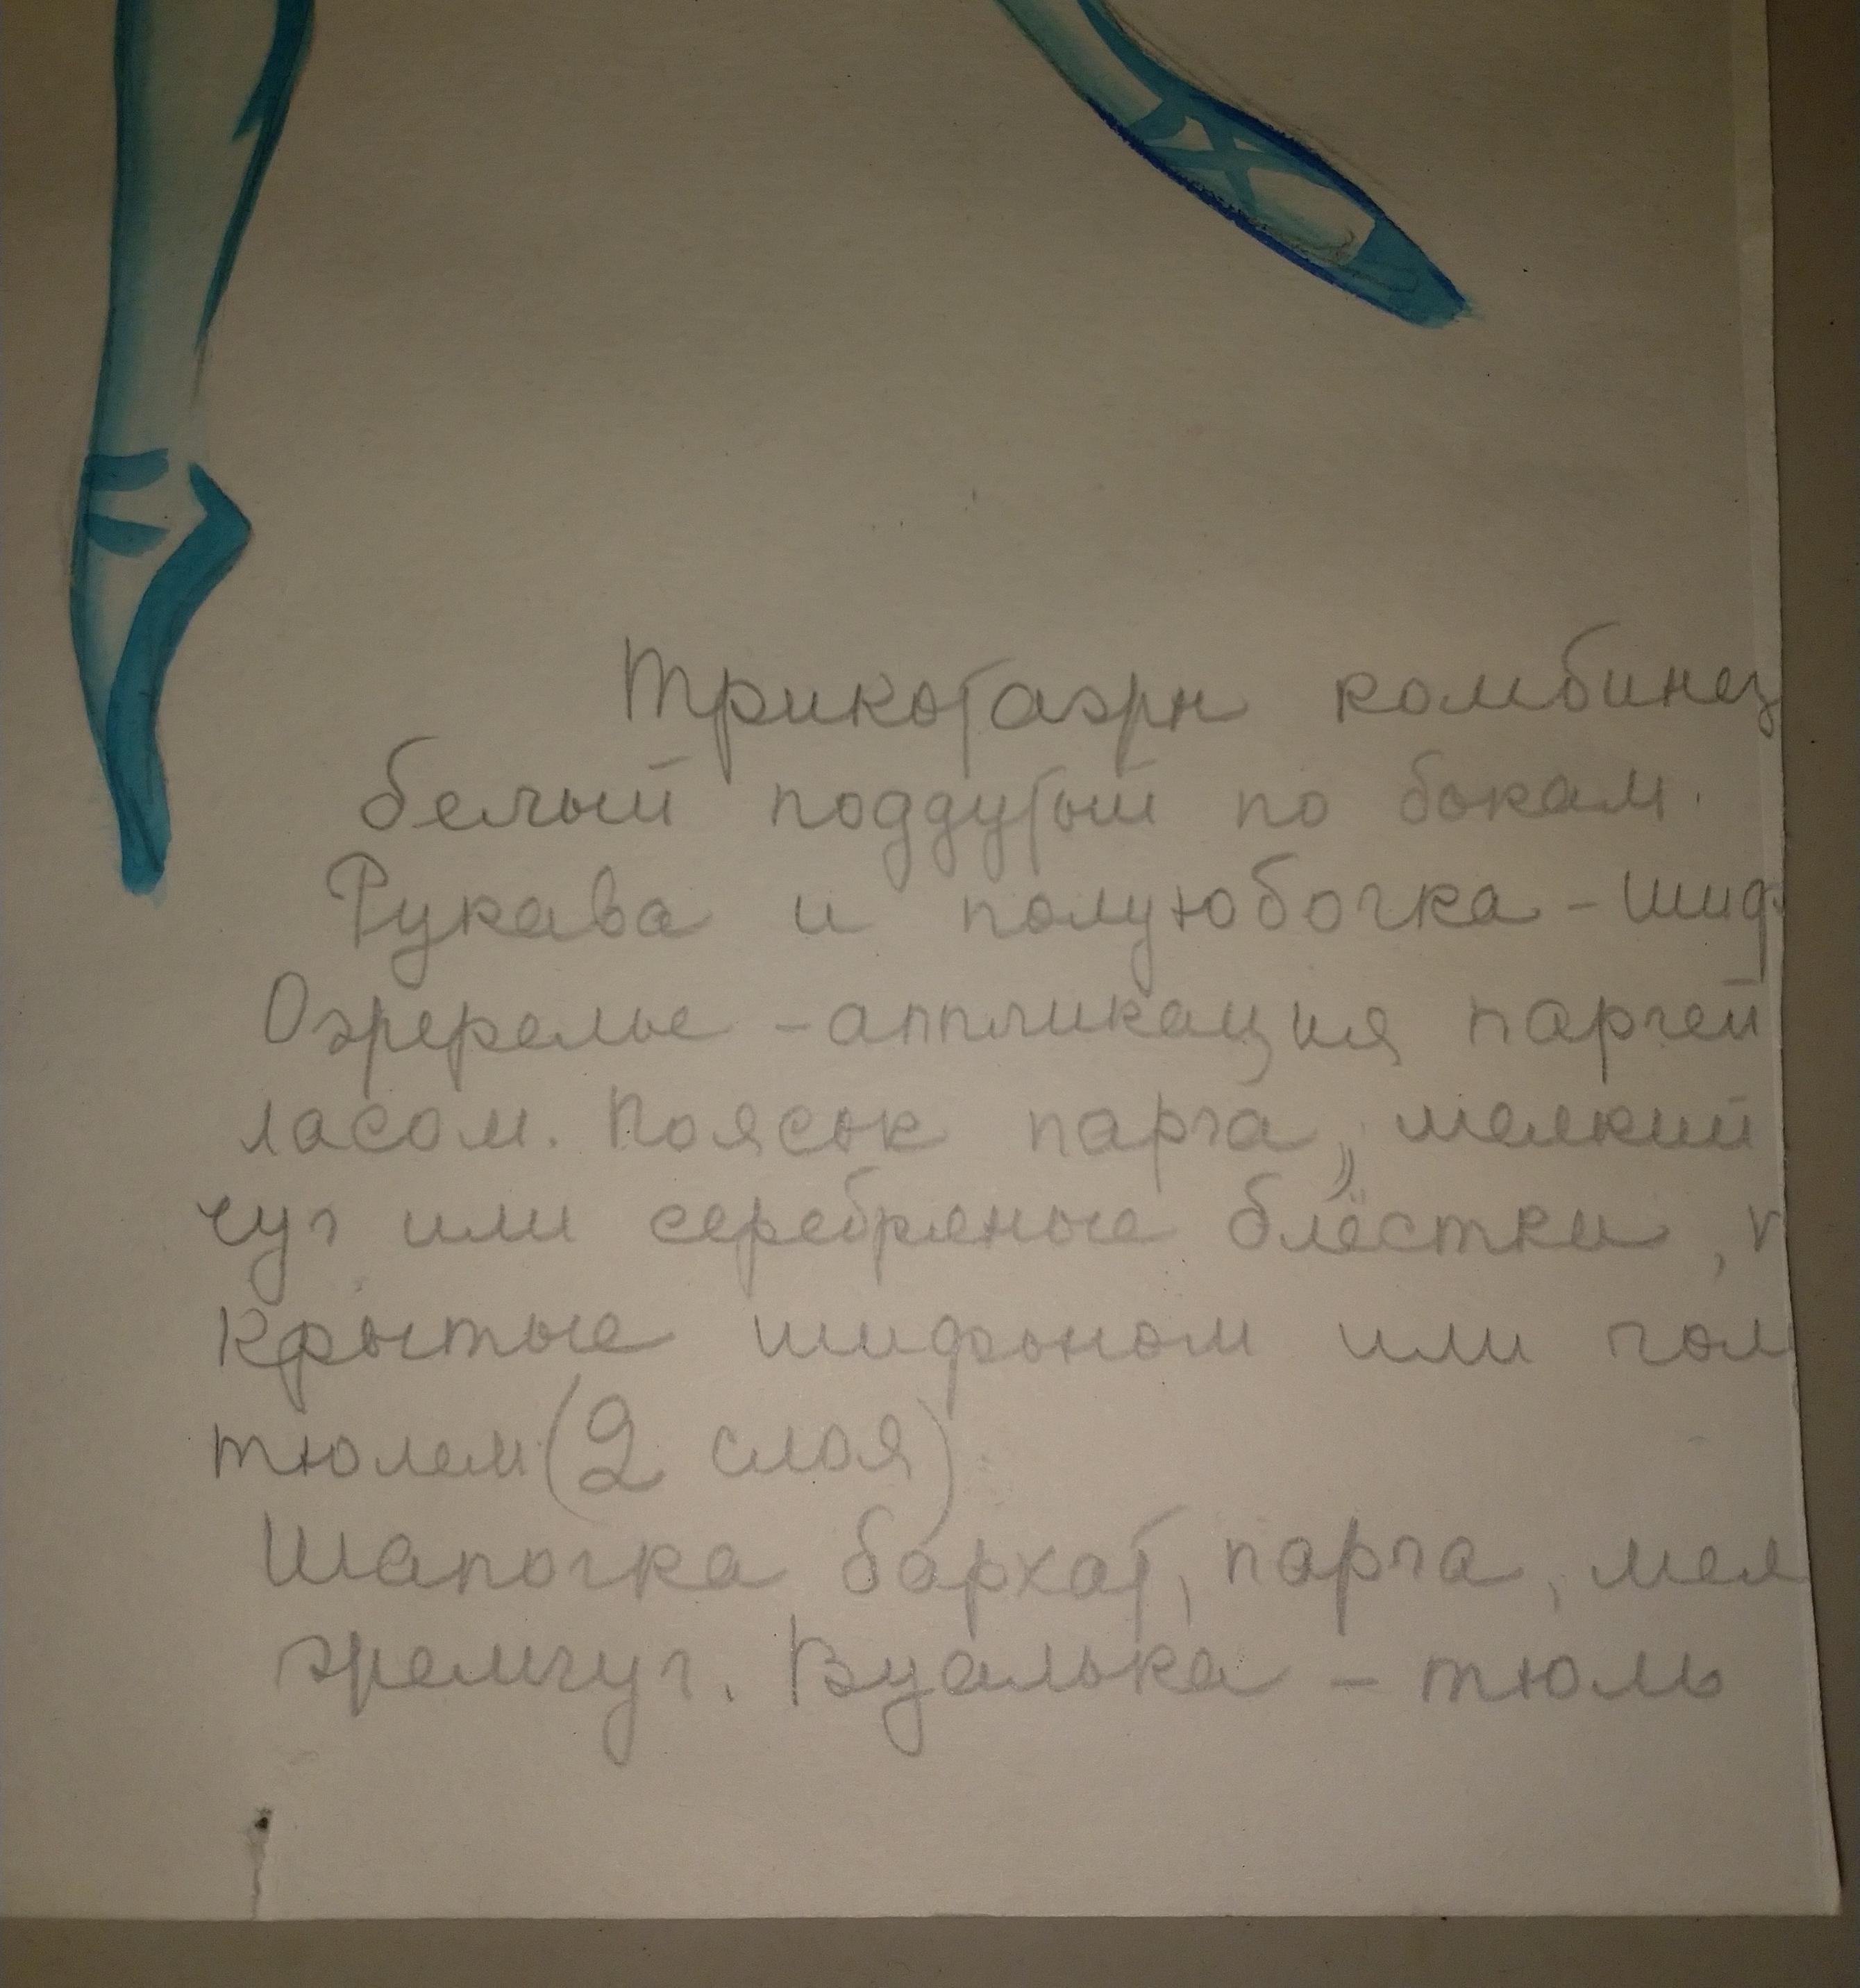 Трикотажн комбинез
белый поддутый по бокам.
Рукава и полуюбочка - шиф
Ожерелье - аппликация парчей
ласом. Поясок парча, мелкий
чуг или серебряные блёстки, п
крытые шифоном или гол
тюлем (2 слоя).
Шапочка бархат, парча, мел
жемчуг. Вуалька - тюль